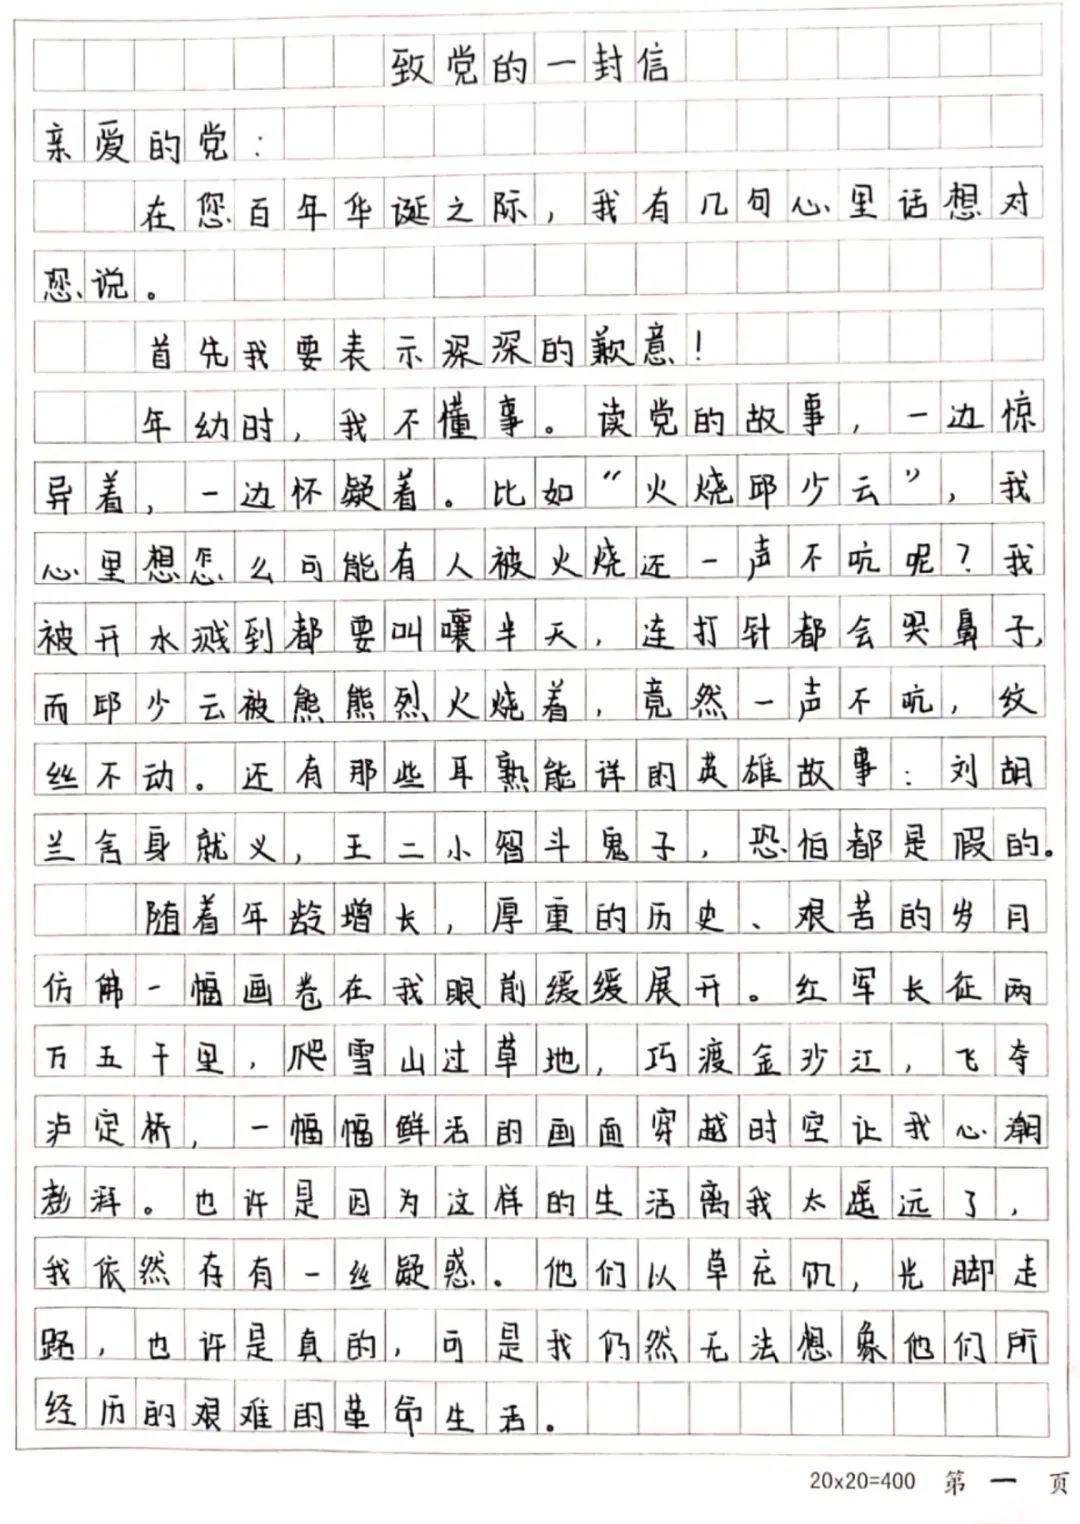 致党的一封信
亲爱的党：
在您百年华诞之际，我有几句心里话想对
您说。
首先我要表示深深的歉意！
年幼时，我不懂事。读党的故事，一边惊
异着，一边怀疑着。比如“火烧邱少云”，我
心里想怎么可能有人被火烧还一声不吭呢？我
被开水溅到都要叫嚷半天，连打针都会哭鼻子，
而邱少云被熊熊烈火烧着，竟然一声不吭，纹
丝不动。还有那些耳熟能详的英雄故事：刘胡
兰舍身就义，王二小智斗鬼子，恐怕都是假的。
随着年龄增长，厚重的历史、艰苦的岁月
仿佛一幅画卷在我眼前缓缓展开。红军长征两
万五千里，爬雪山过草地，巧渡金沙江，飞夺
泸定桥，一幅幅鲜活的画面穿越时空让我心潮
澎湃。也许是因为这样的生活离我太遥远了，
我依然存有一丝疑惑。他们以草充饥，光脚走
路，也许是真的，可是我仍然无法想象他们所
经历的艰难的革命生活。
20x20=400 第一页